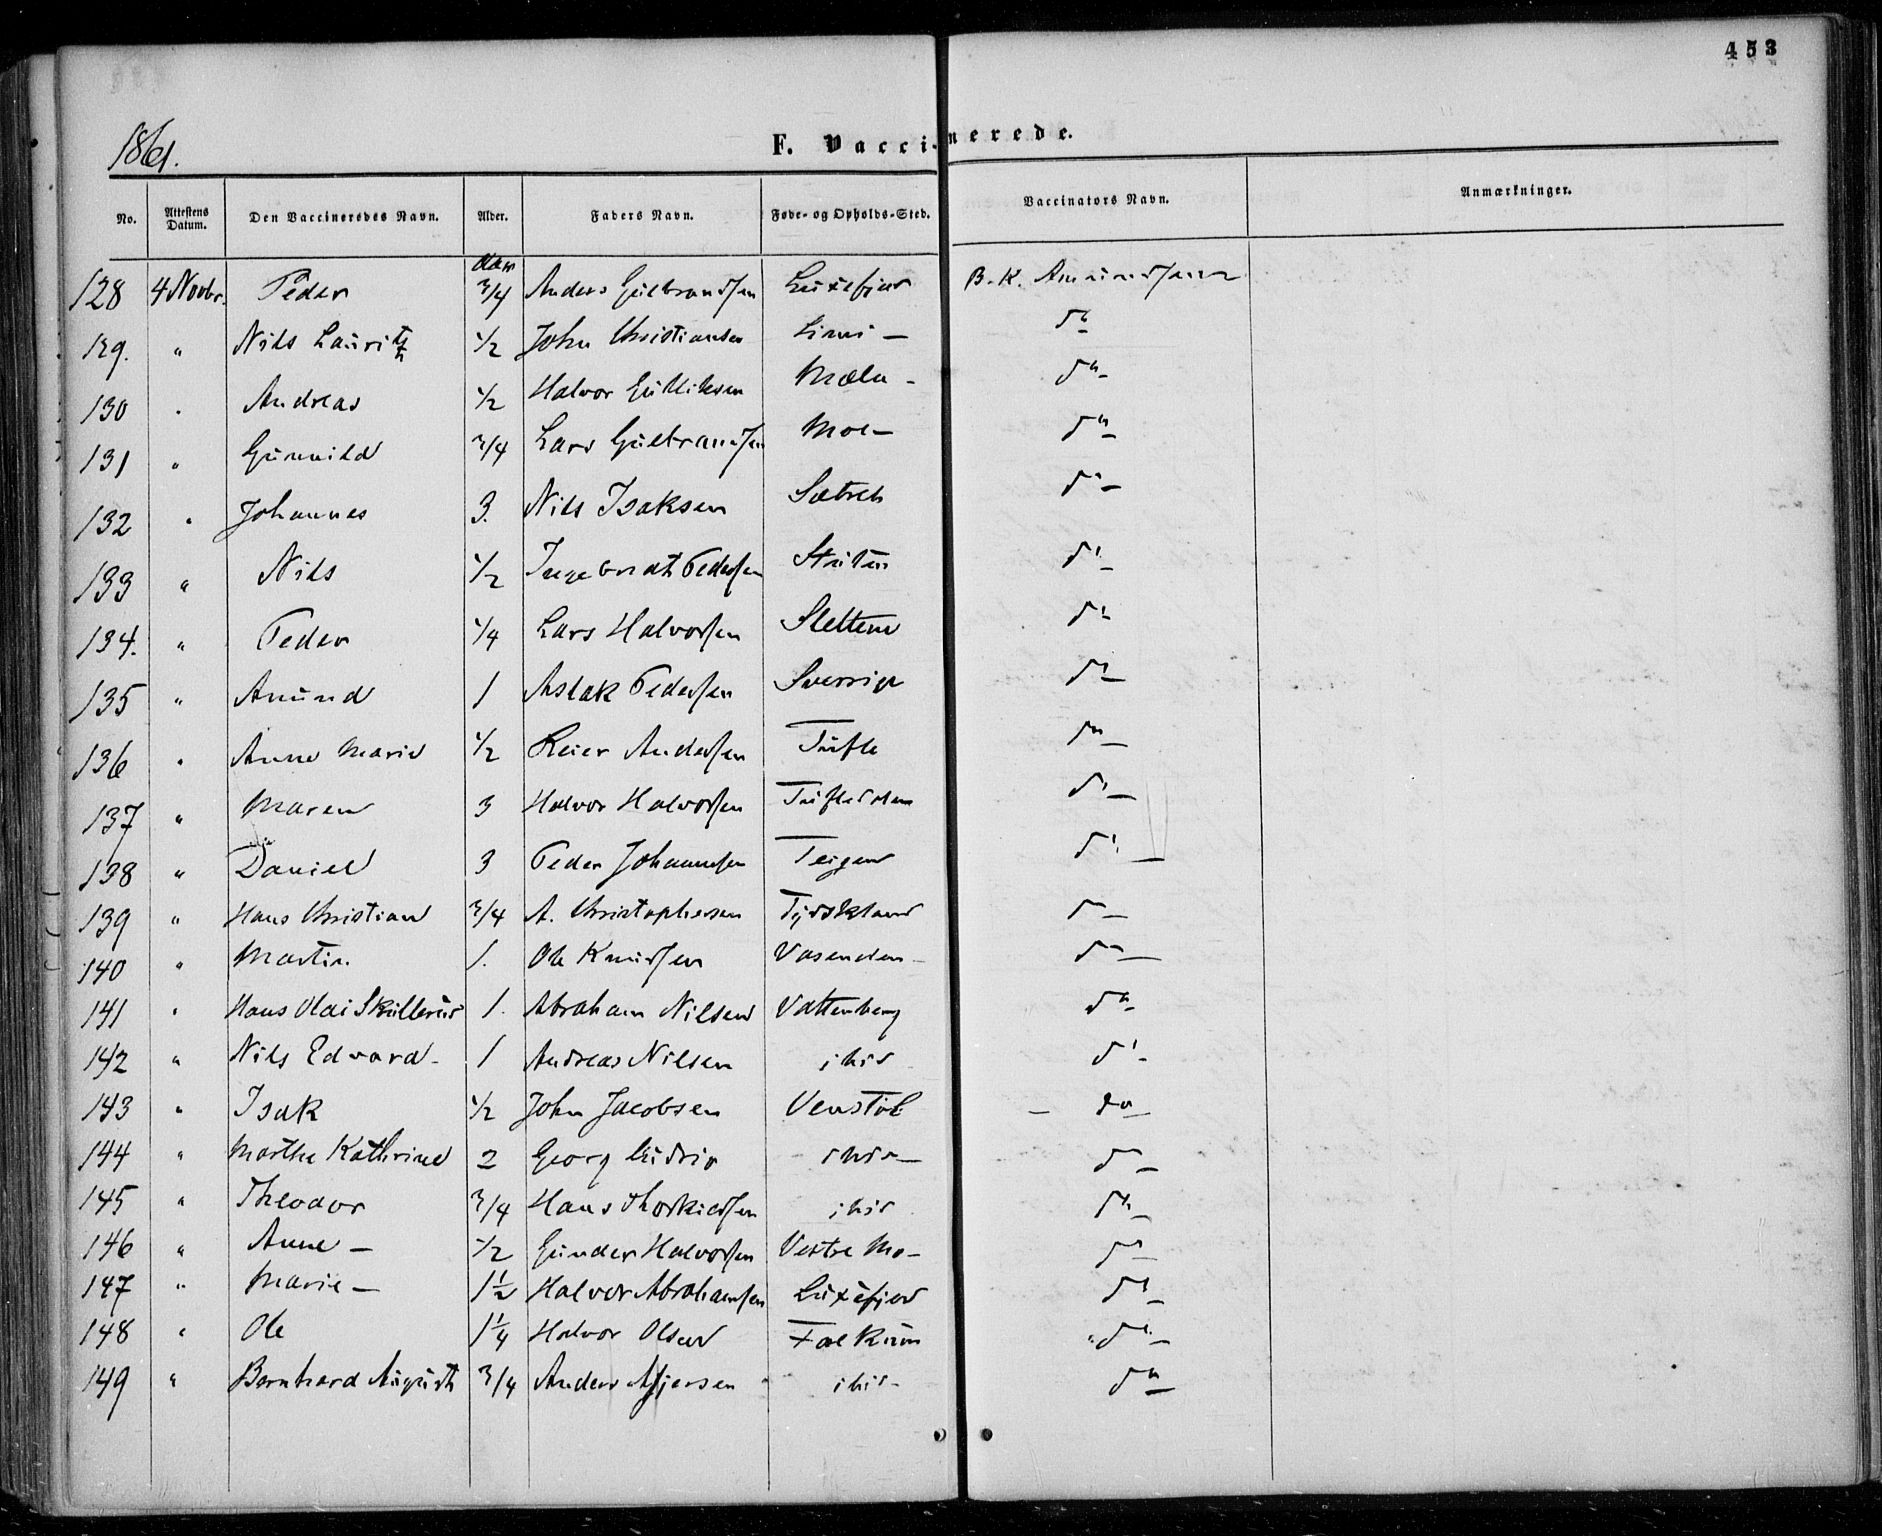 453
1861.
F. Vaccinerede.
No. Attestens Datum. Den Vaccineredes Navn. Alder. Faders Navn. Føde- og Opholds-Sted. Vaccinators Navn. Anmærkninger.
128 4 Novbr. Peder Aar 3/4 Anders Gulbrandsen Luxefjed B. K. Amundsen
129. " Nils Lauritz 1/2 John Christiansen Limi – do
130 " Andreas 1/2 Halvor Gulliksen Mæla – do
131 " Gunnild 3/4 Lars Gulbrandsen Moe – do
132 " Johannes 3. Nils Isaksen Sætreh do
133 " Nils 1/2 Ingebredt Pedersen do
134. " Peder 1/4 Lars Halvorsen Slettene do
135 " Amund 1 Aslak Pedersen Sverrige do
136 " Anne Marie 1/2 Reier Andersen Tufte do
137 " Maren 3 Halvor Halvorsen do
138 " Daniel 3 Peder Johannesen Teigen do
139 " Hans Christian 3/4 A. Christophersen Tydskland do
140 " Martin. 1. Ole Knudsen Vasenden – do
141 " Hans Olai Skullerud 1. Abraham Nilsen Vattenberg do
142 " Nils Edvard – 1 Andreas Nilsen ibid do
143 " Isak 1/2 John Jacobsen Venstöb do
144 " Marthe Kathrine 2 Georg ibid do
145 " Theodor 3/4 Hans Thorkildsen ibid do
146 " Anne – 1/2 Gunder Halvorsen Vestre Mo – do
147 " Marie – 1 1/2 Halvor Abrahamsen Luxefjed do
148 " Ole 1 1/4 Halvor Olsen Falkum do
149 " Bernhard August 3/4 Anders ibid – do